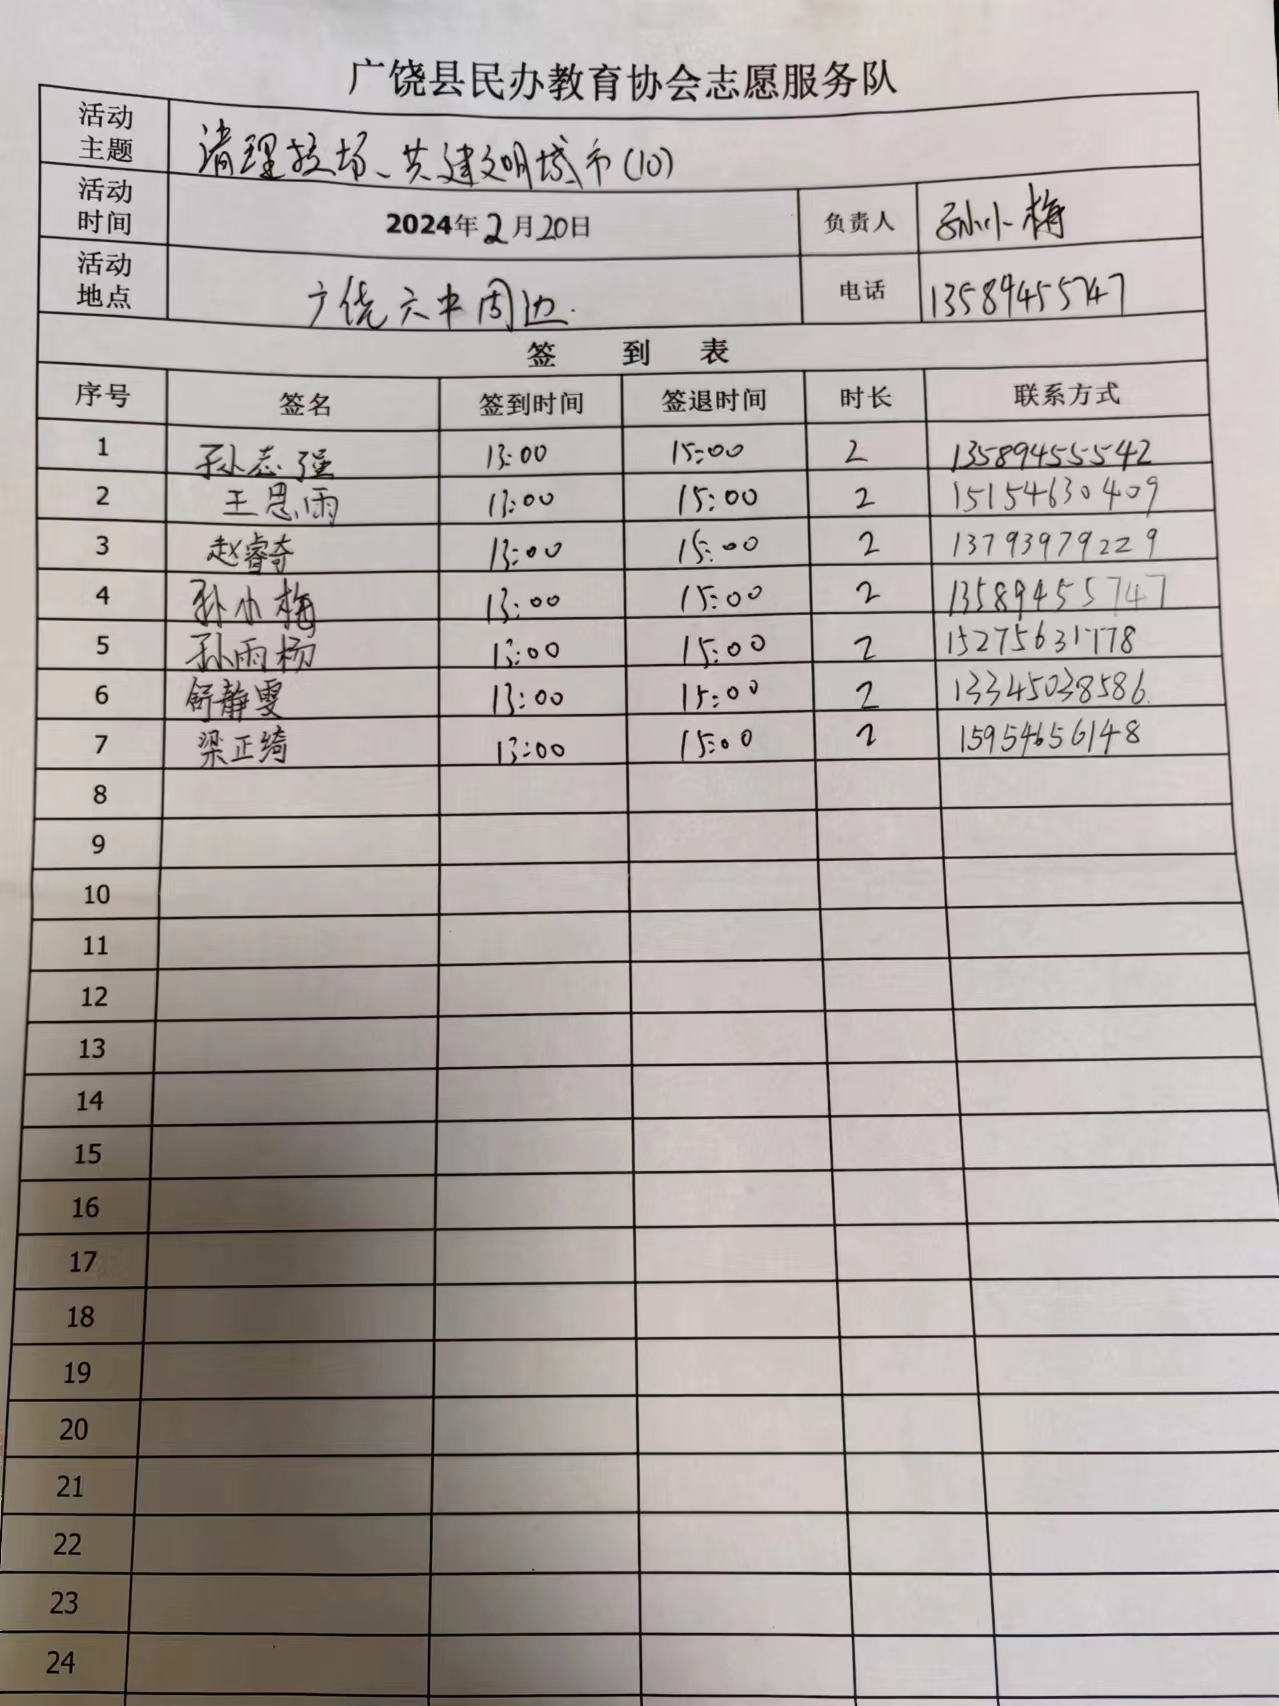 广饶县民办教育协会志愿服务队
活动主题 清理垃圾、共建文明城市(10)
活动时间 2024年2月20日 负责人 孙小梅
活动地点 广饶六中周边. 电话 13589455747
签 到 表
序号 签名 签到时间 签退时间 时长 联系方式
1 孙志强 13:00 15:00 2 13589455542
2 王思雨 13:00 15:00 2 15154630409
3 赵睿奇 13:00 15:00 2 13793979229
4 孙小梅 13:00 15:00 2 13589455747
5 孙雨杨 13:00 15:00 2 15275631778
6 舒静雯 13:00 15:00 2 13345038586.
7 梁正绮 13:00 15:00 2 15954656148
8
9
10
11
12
13
14
15
16
17
18
19
20
21
22
23
24